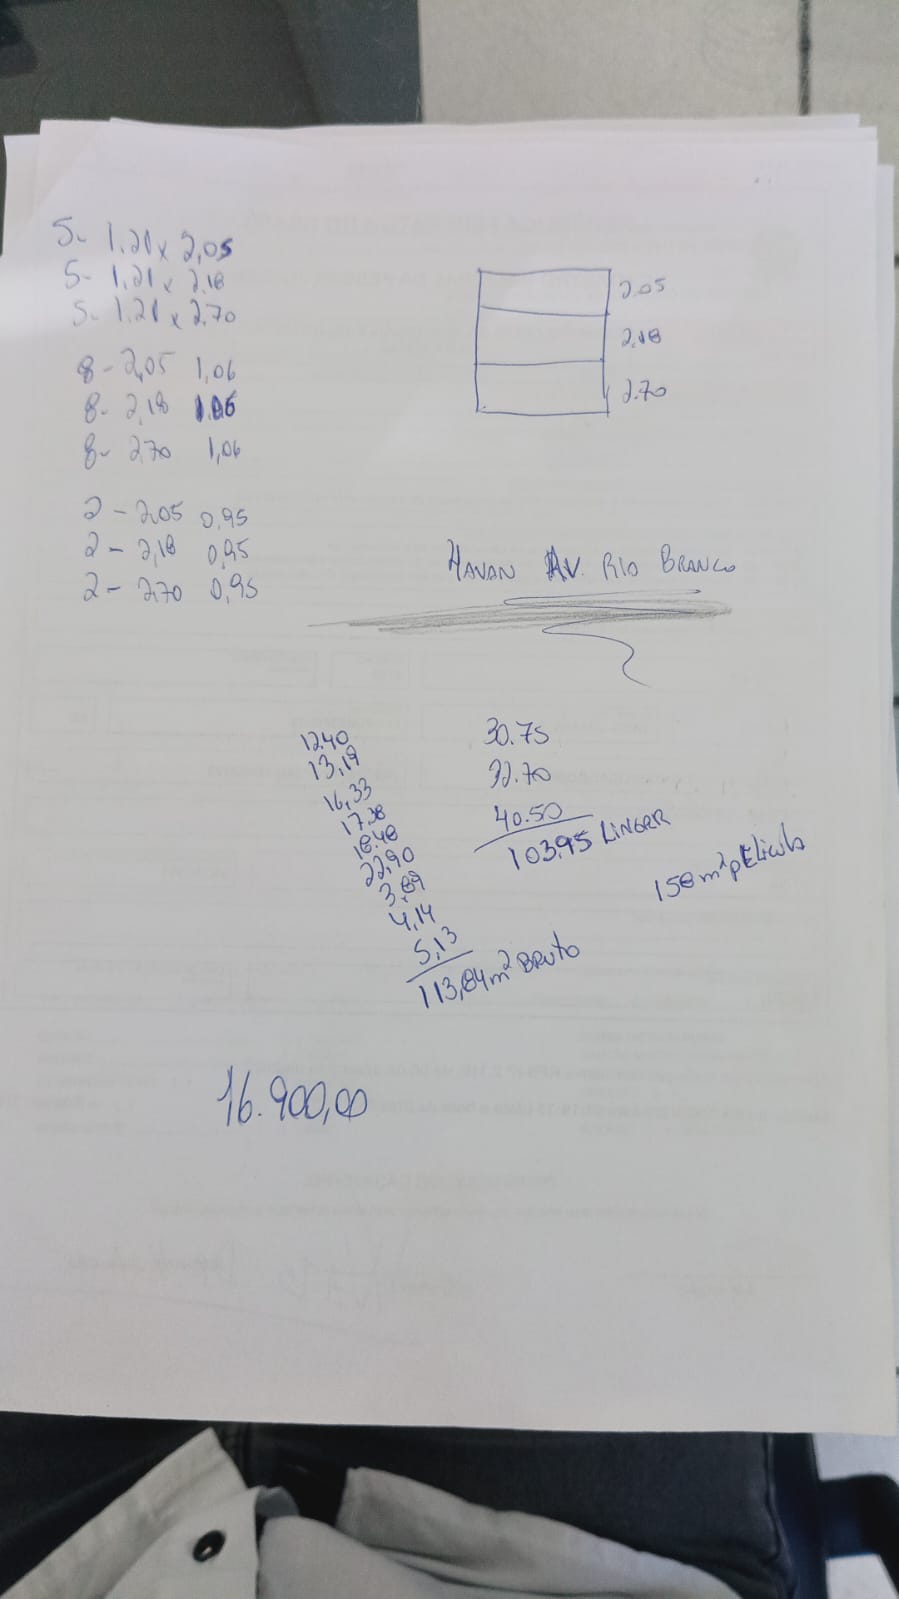 5- 1.21 x 2,05
5- 1,21 x 2.18
5- 1.21 x 2.70
8- 2,05 1,06
8- 2,18 1.06
8- 2,70 1,06
2 - 2.05 0,95
2 - 2,18 0,95
2 - 2,70 0,95
2.05
2.18
2.70
HAVAN AV. RIO BRANCO
12.40
13,19
16,33
17.38
18.48
22,90
3,89
4,14
5,13
113,84 m² BRUTO
30.75
32.70
40.50
103,95 LINEAR
158 m² pELiculA
16.900,00